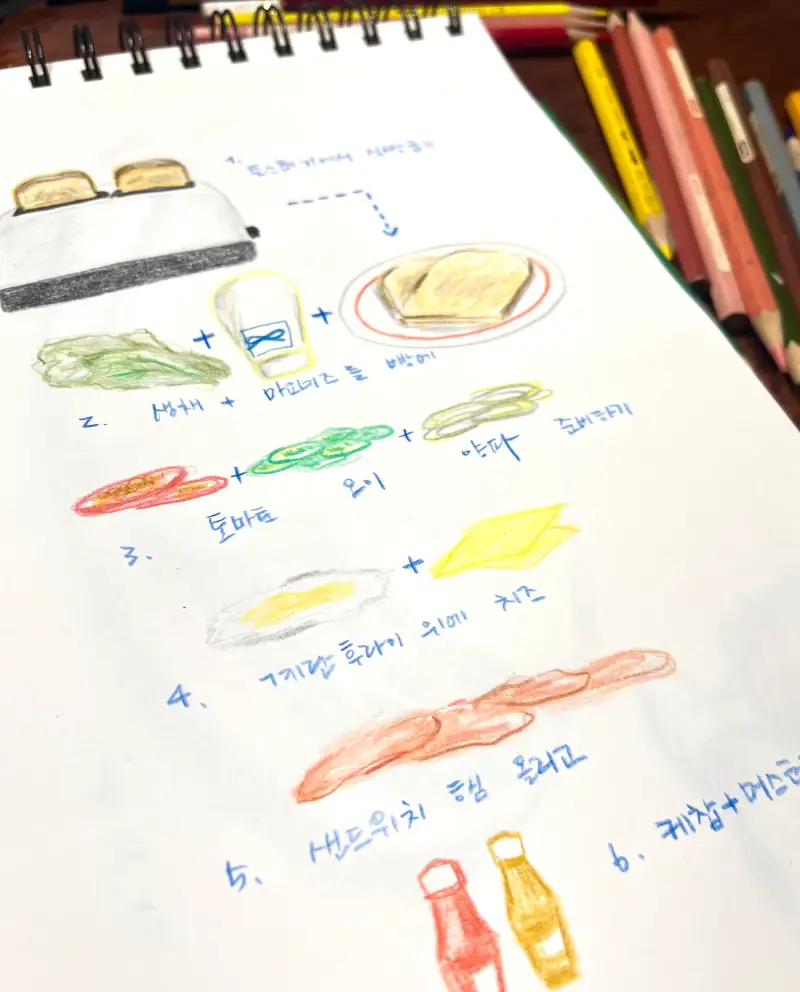 1. 토스터기에서 식빵굽기
+ +
2. 생채 + 마요네즈를 빵에
+ +
토마토 오이 양파 준비하기
3.
+
계란후라이 위에 치즈
4.
샌드위치 햄 올리고
5.
6. 케찹+머스터